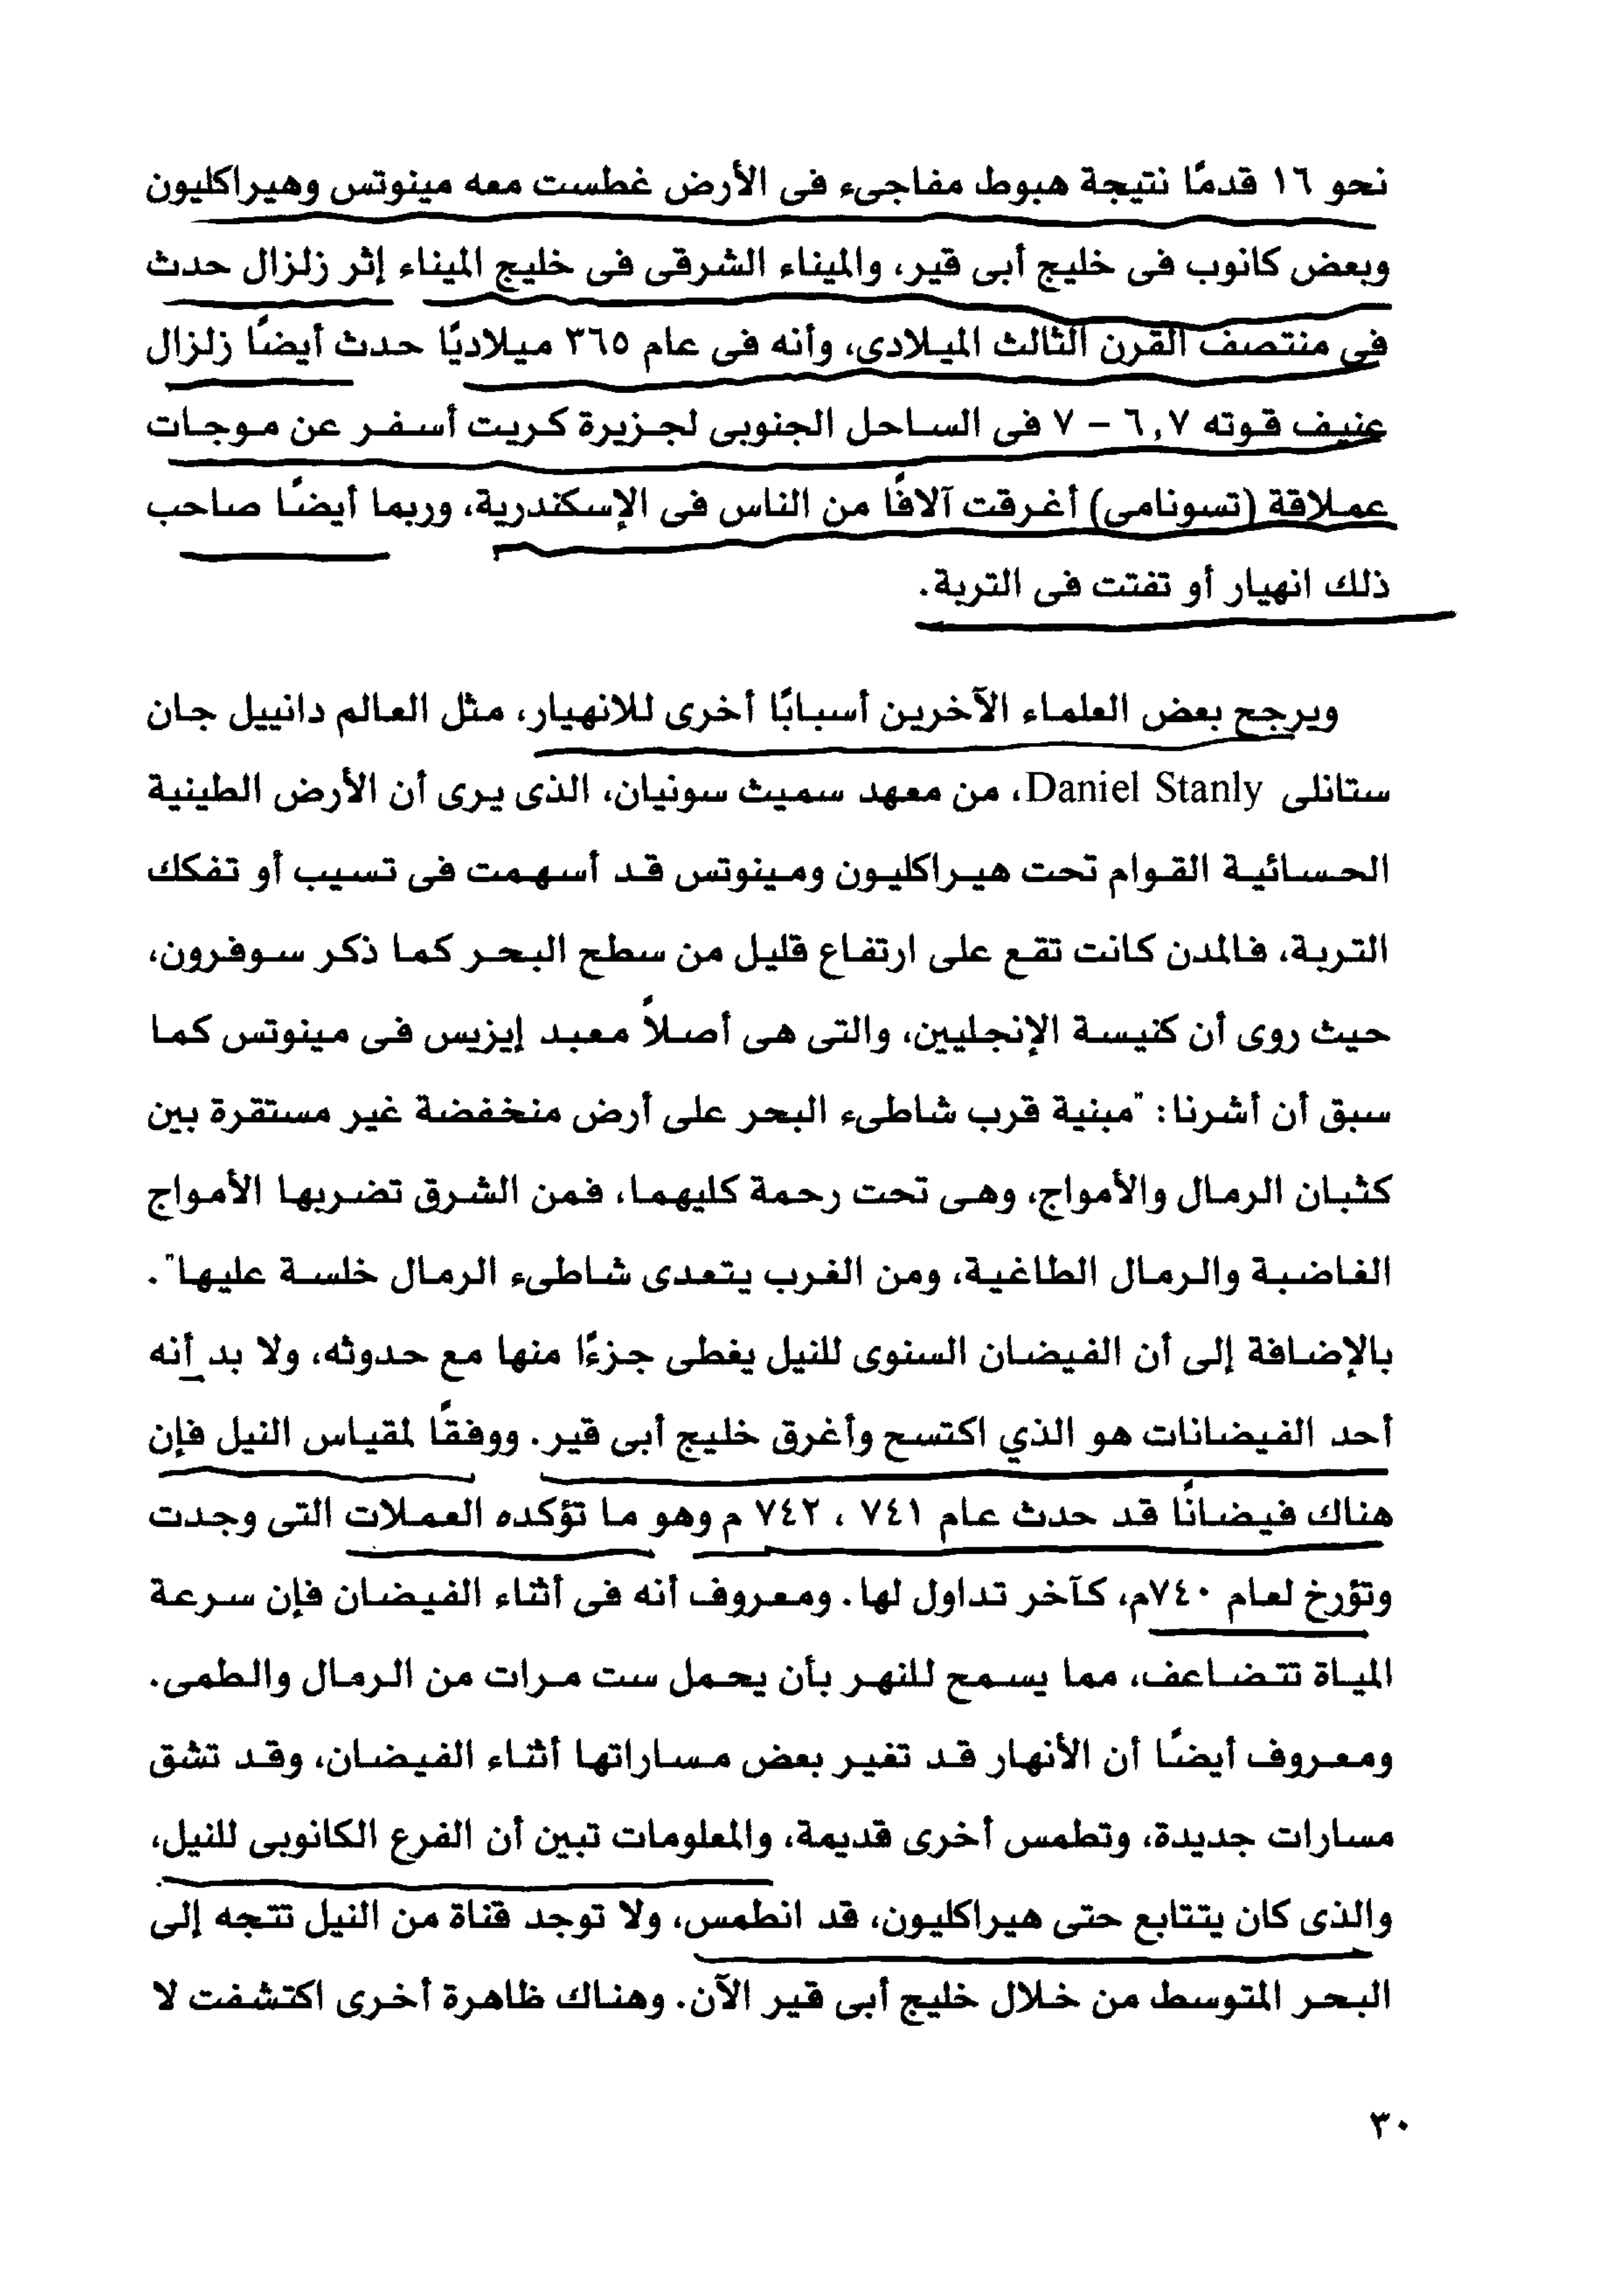 نحو ١٦ قدمًا نتيجة هبوط مفاجىء فى الأرض غطست معه مينوتس وهيراكليون
وبعض كانوب فى خليج أبى قير، والميناء الشرقى فى خليج الميناء إثر زلزال حدث
فى منتصف القرن الثالث الميلادى، وأنه فى عام ٣٦٥ ميلاديًا حدث أيضًا زلزال
عنيف قوته ٦,٧ – ٧ فى الساحل الجنوبى لجزيرة كريت أسفر عن موجات
عملاقة (تسونامى) أغرقت آلافًا من الناس فى الإسكندرية، وربما أيضًا صاحب
ذلك انهيار أو تفتت فى التربة.
ويرجح بعض العلماء الآخرين أسبابًا أخرى للانهيار، مثل العالم دانييل جان
ستانلى Daniel Stanly، من معهد سميث سونيان، الذى يرى أن الأرض الطينية
الحسائية القوام تحت هيراكليون ومينوتس قد أسهمت فى تسيب أو تفكك
التربة، فالمدن كانت تقع على ارتفاع قليل من سطح البحر كما ذكر سوفرون،
حيث روى أن كنيسة الإنجليين، والتى هى أصلاً معبد إيزيس فى مينوتس كما
سبق أن أشرنا: "مبنية قرب شاطىء البحر على أرض منخفضة غير مستقرة بين
كثبان الرمال والأمواج، وهى تحت رحمة كليهما، فمن الشرق تضربها الأمواج
الغاضبة والرمال الطاغية، ومن الغرب يتعدى شاطىء الرمال خلسة عليها".
بالإضافة إلى أن الفيضان السنوى للنيل يغطى جزءًا منها مع حدوثه، ولا بد أنه
أحد الفيضانات هو الذي اكتسح وأغرق خليج أبى قير. ووفقًا لمقياس النيل فإن
هناك فيضانًا قد حدث عام ٧٤١ ، ٧٤٢ م وهو ما تؤكده العملات التى وجدت
وتؤرخ لعام ٧٤٠م، كآخر تداول لها. ومعروف أنه فى أثناء الفيضان فإن سرعة
المياة تتضاعف، مما يسمح للنهر بأن يحمل ست مرات من الرمال والطمى.
ومعروف أيضًا أن الأنهار قد تغير بعض مساراتها أثناء الفيضان، وقد تشق
مسارات جديدة، وتطمس أخرى قديمة، والمعلومات تبين أن الفرع الكانوبى للنيل،
والذى كان يتتابع حتى هيراكليون، قد انطمس، ولا توجد قناة من النيل تتجه إلى
البحر المتوسط من خلال خليج أبى قير الآن. وهناك ظاهرة أخرى اكتشفت لا
٣٠